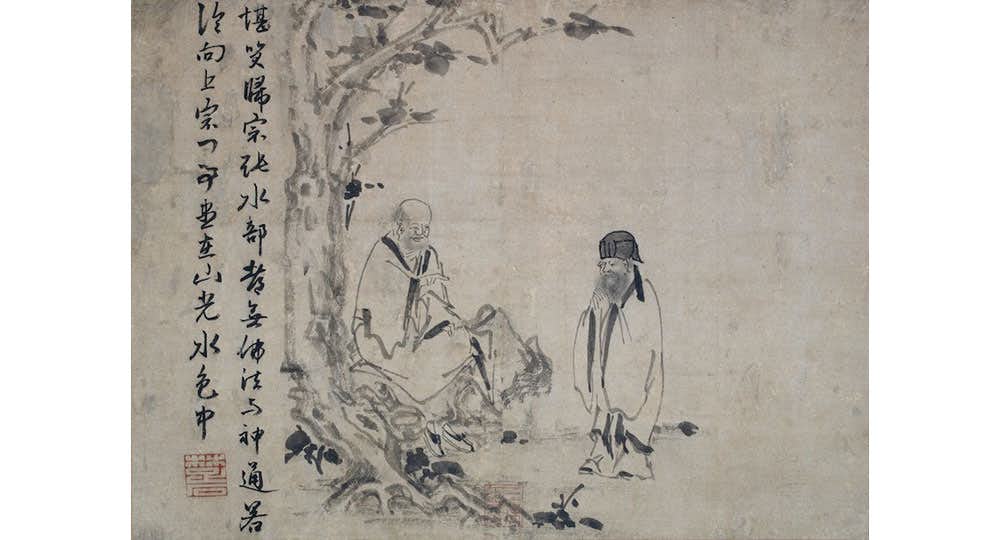 堪笑歸宗張水部都無佛法与神通若
論向上宗門事盡在山光水色中